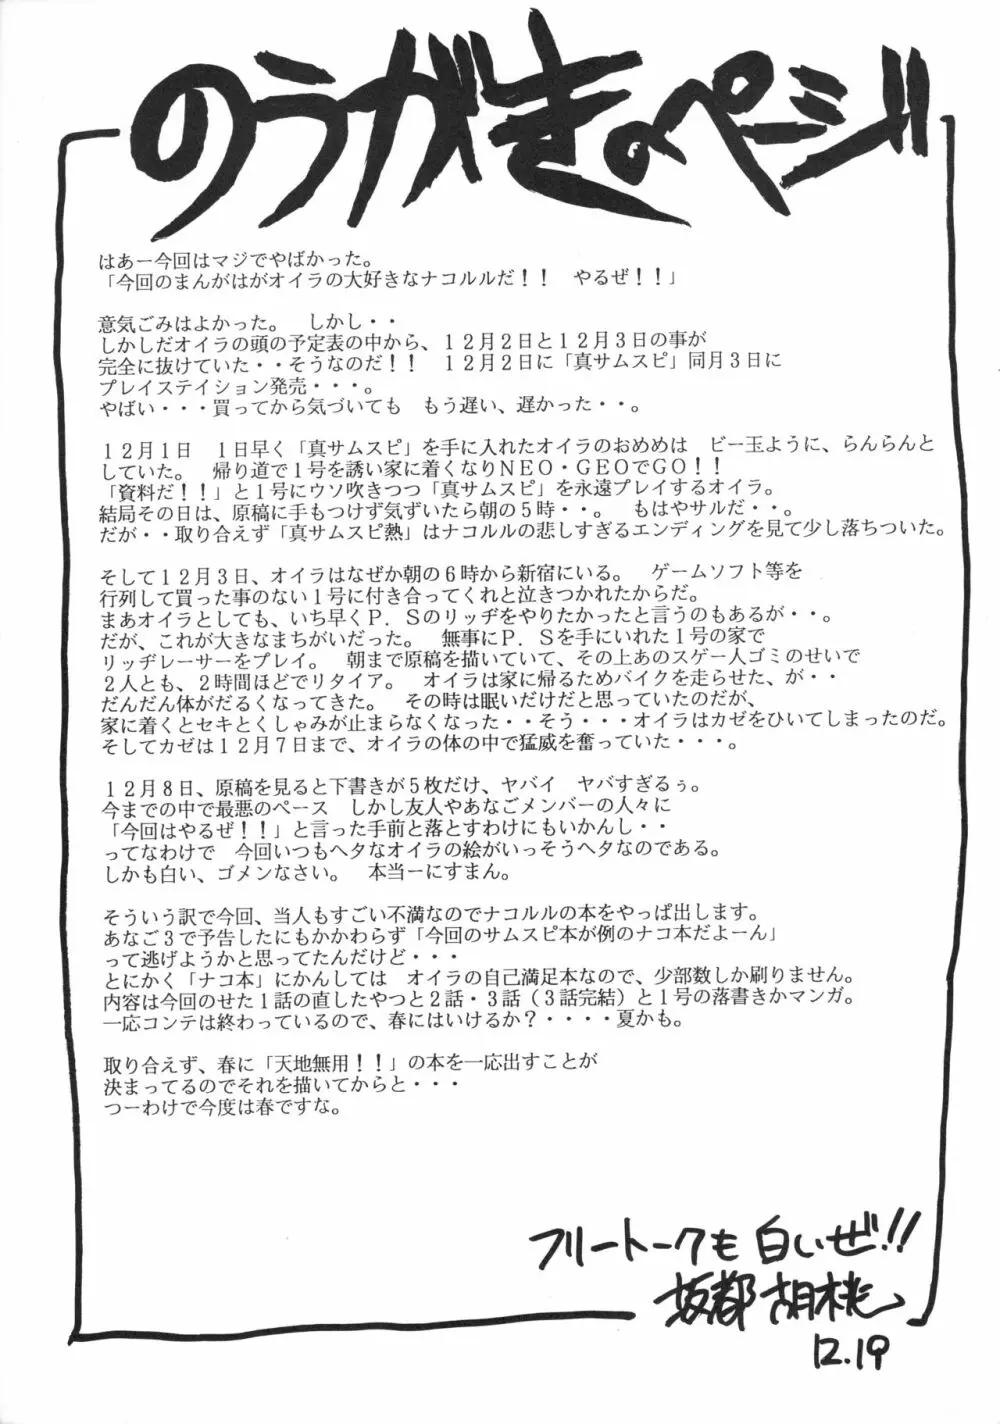 のうがきのページ!!
はあー今回はマジでやばかった。
「今回のまんがはがオイラの大好きなナコルルだ！！　やるぜ！！」
意気ごみはよかった。　しかし・・
しかしだオイラの頭の予定表の中から、１２月２日と１２月３日の事が
完全に抜けていた・・そうなのだ！！　１２月２日に「真サムスピ」同月３日に
プレイステイション発売・・・。
やばい・・・買ってから気づいても　もう遅い、遅かった・・。
１２月１日　１日早く「真サムスピ」を手に入れたオイラのおめめは　ビー玉ように、らんらんと
していた。　帰り道で１号を誘い家に着くなりＮＥＯ・ＧＥＯでＧＯ！！
「資料だ！！」と１号にウソ吹きつつ「真サムスピ」を永遠プレイするオイラ。
結局その日は、原稿に手もつけず気ずいたら朝の５時・・。　もはやサルだ・・。
だが・・取り合えず「真サムスピ熱」はナコルルの悲しすぎるエンディングを見て少し落ちついた。
そして１２月３日、オイラはなぜか朝の６時から新宿にいる。　ゲームソフト等を
行列して買った事のない１号に付き合ってくれと泣きつかれたからだ。
まあオイラとしても、いち早くＰ．Ｓのリッヂをやりたかったと言うのもあるが・・。
だが、これが大きなまちがいだった。　無事にＰ．Ｓを手にいれた１号の家で
リッヂレーサーをプレイ。　朝まで原稿を描いていて、その上あのスゲー人ゴミのせいで
２人とも、２時間ほどでリタイア。　オイラは家に帰るためバイクを走らせた、が・・
だんだん体がだるくなってきた。　その時は眠いだけだと思っていたのだが、
家に着くとセキとくしゃみが止まらなくなった・・そう・・・オイラはカゼをひいてしまったのだ。
そしてカゼは１２月７日まで、オイラの体の中で猛威を奮っていた・・・。
１２月８日、原稿を見ると下書きが５枚だけ、ヤバイ　ヤバすぎるぅ。
今までの中で最悪のペース　しかし友人やあなごメンバーの人々に
「今回はやるぜ！！」と言った手前と落とすわけにもいかんし・・
ってなわけで　今回いつもヘタなオイラの絵がいっそうヘタなのである。
しかも白い、ゴメンなさい。　本当ーにすまん。
そういう訳で今回、当人もすごい不満なのでナコルルの本をやっぱ出します。
あなご３で予告したにもかかわらず「今回のサムスピ本が例のナコ本だよーん」
って逃げようかと思ってたんだけど・・・
とにかく「ナコ本」にかんしては　オイラの自己満足本なので、少部数しか刷りません。
内容は今回のせた１話の直したやつと２話・３話（３話完結）と１号の落書きかマンガ。
一応コンテは終わっているので、春にはいけるか？・・・・夏かも。
取り合えず、春に「天地無用！！」の本を一応出すことが
決まってるのでそれを描いてからと・・・
つーわけで今度は春ですな。
フリートークも白いぜ!!
坂都胡桃
12.19